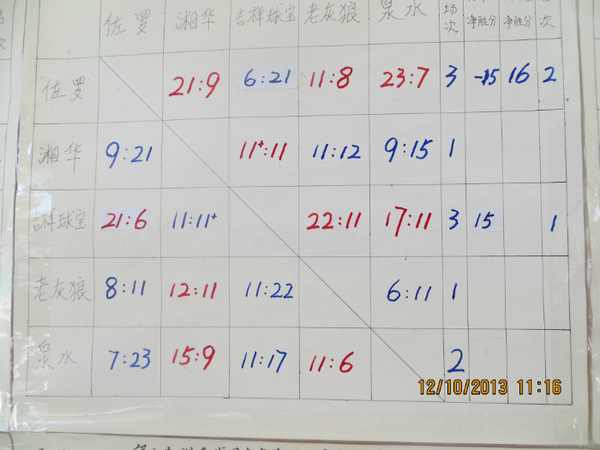 佐罗 湘华 吉祥珠宝 老灰狼 泉水 场次 净胜分 净胜分 次
佐罗 21:9 6:21 11:8 23:7 3 -15 16 2
湘华 9:21 11+:11 11:12 9:15 1
吉祥珠宝 21:6 11:11+ 22:11 17:11 3 15 1
老灰狼 8:11 12:11 11:22 6:11 1
泉水 7:23 15:9 11:17 11:6 2
12/10/2013 11:16